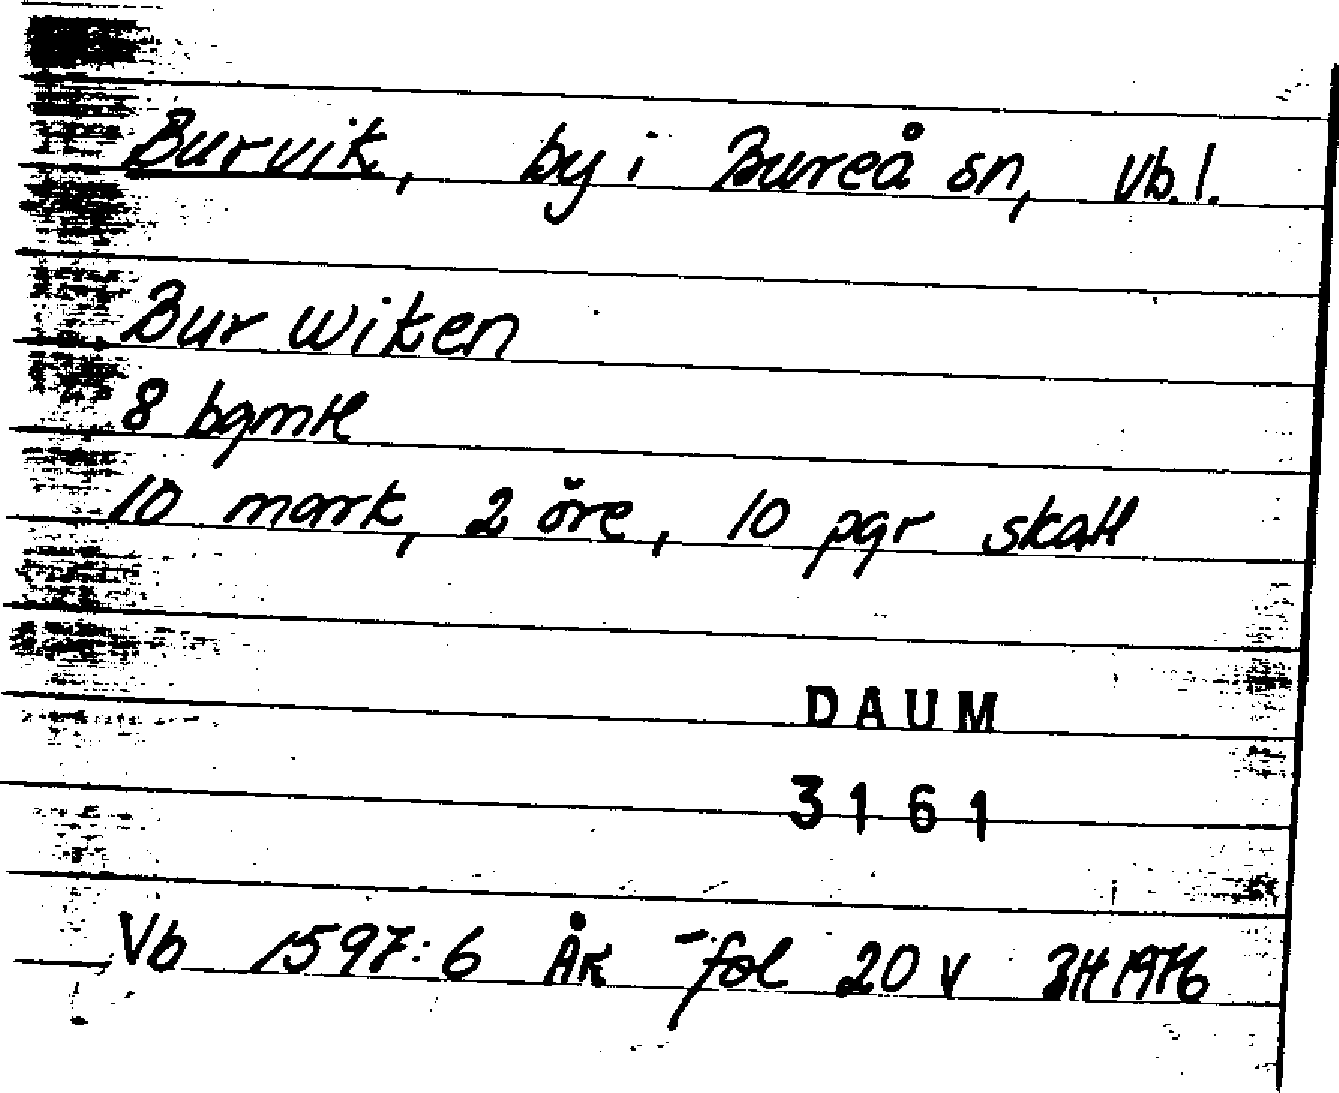 Burvik, by i Bureå sn, Vb. l.
Bur wiken
8 bgmtl
10 mark, 2 öre, 10 pgr skatt
DAUM
3161
Vb 1597:6 ÅK - fol 20 v BH 1976